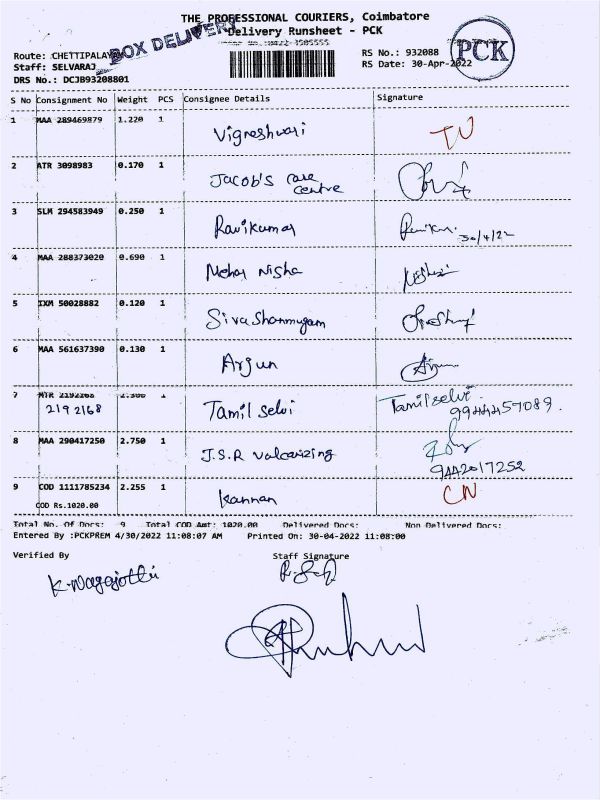 THE PROFESSIONAL COURIERS, Coimbatore
Delivery Runsheet - PCK
BOX DELIVERY
PCK
Route: CHETTIPALAYAM
RS No.: 932088
Staff: SELVARAJ
RS Date: 30-Apr-2022
DRS No.: DCJB93208801
S No Consignment No Weight PCS Consignee Details Signature
1 MAA 289469879 1.220 1 Vigneshwari
2 ATR 3098983 0.170 1 Jacob's care centre
3 SLM 294583949 0.250 1 Ravikumar 30/4/22
4 MAA 288373020 0.690 1 Mehar Nisha
5 IXM 50028882 0.120 1 Siva Shanmugam
6 MAA 561637390 0.130 1 Arjun
7 MTR 2192168 2.300 1 Tamil selvi Tamilselvi
2192168 9944457089.
8 MAA 290417250 2.750 1 J.S.R Valcanizing
9442017252
9 COD 1111785234 2.255 1 Kannan CN
COD Rs.1020.00
Total No. Of Docs: 9 Total COD Amt: 1020.00 Delivered Docs: Non Delivered Docs:
Entered By :PCKPREM 4/30/2022 11:08:07 AM Printed On: 30-04-2022 11:08:00
Verified By Staff Signature